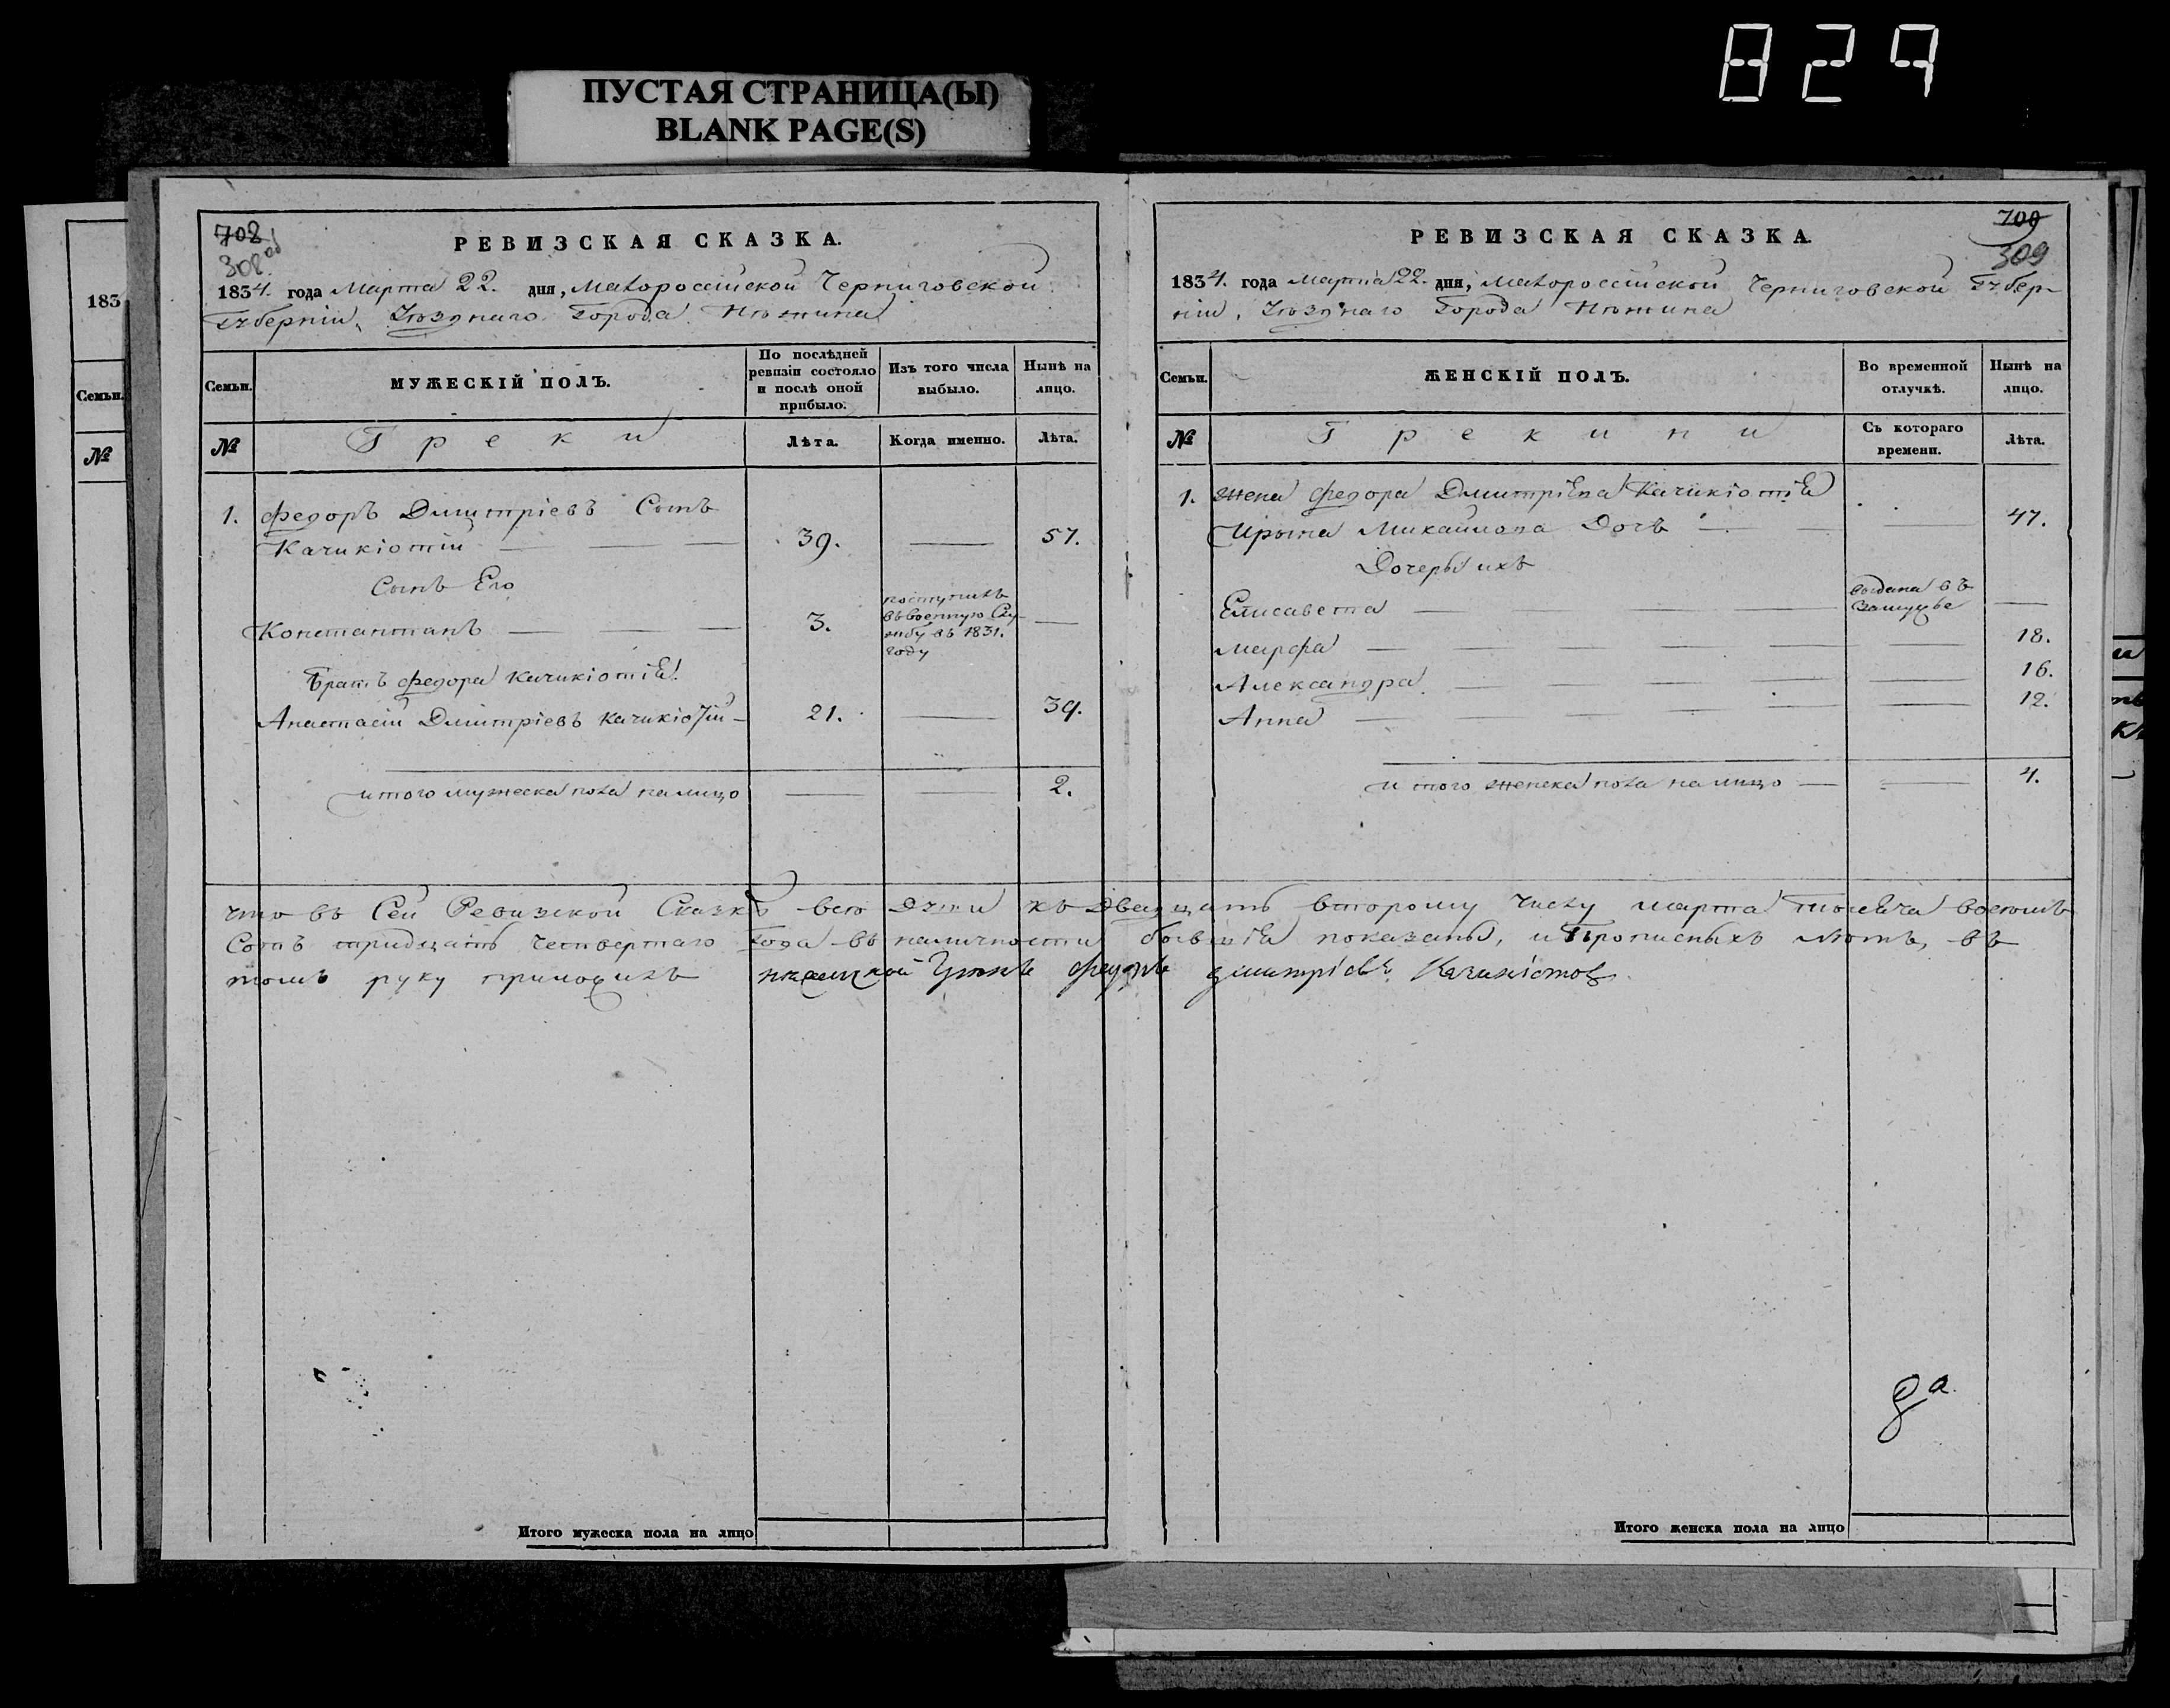 829
ПУСТАЯ СТРАНИЦА(Ы)
BLANK PAGE(S)
183
Семьи.
№
708
308 об
РЕВИЗСКАЯ СКАЗКА.
1834. года Марта 22. дня, Малоросссійской Черниговской
Губерніи, Уѣзднаго Города Нѣжина
Семьи.
МУЖЕСКІЙ ПОЛЪ.
По послѣдней ревизіи состояло и послѣ оной прибыло.
Изъ того числа выбыло.
Нынѣ на лицо.
№
Греки
Лѣта.
Когда именно.
Лѣта.
1. Федоръ Димитріевъ Сынъ
Качикіотій — — 39. — 57.
Сынъ Его
Константинъ — — 3. поступилъ въ военную Службу въ 1831. году —
Братъ Федора Качикіотія
Анастасій Димитріевъ Качикіотій — 21. — 39.
итого мужеска пола налицо — — 2.
Итого мужеска пола на лицо
709
309
РЕВИЗСКАЯ СКАЗКА.
1834. года Марта 22. дня, Малороссійской Черниговской Губер-
ніи, Уѣзднаго Города Нѣжина
Семьи.
ЖЕНСКІЙ ПОЛЪ.
Во временной отлучкѣ.
Нынѣ на лицо.
№
Грекини
Съ котораго времени.
Лѣта.
1. Жена Федора Дмитріева Качикіотія
Ирына Михайлова Дочь — — 47.
Дочеры ихъ
Елисавета — выдана въ замужье —
Марфа — — — — — 18.
Александра — — — — 16.
Анна — — — — 12.
итого женска пола налицо — — 4.
Что въ Сей Ревизской Сказкѣ всѣ души къ двадцать второму числу марта тысяча восемъ
Сотъ тридцать четвертаго Года въ наличности бывшія показаны, и Прописныхъ нѣтъ, въ
томъ руку приложилъ нѣжинской Грекъ федоръ димитріевъ Качикіотов
Итого женска пола на лицо